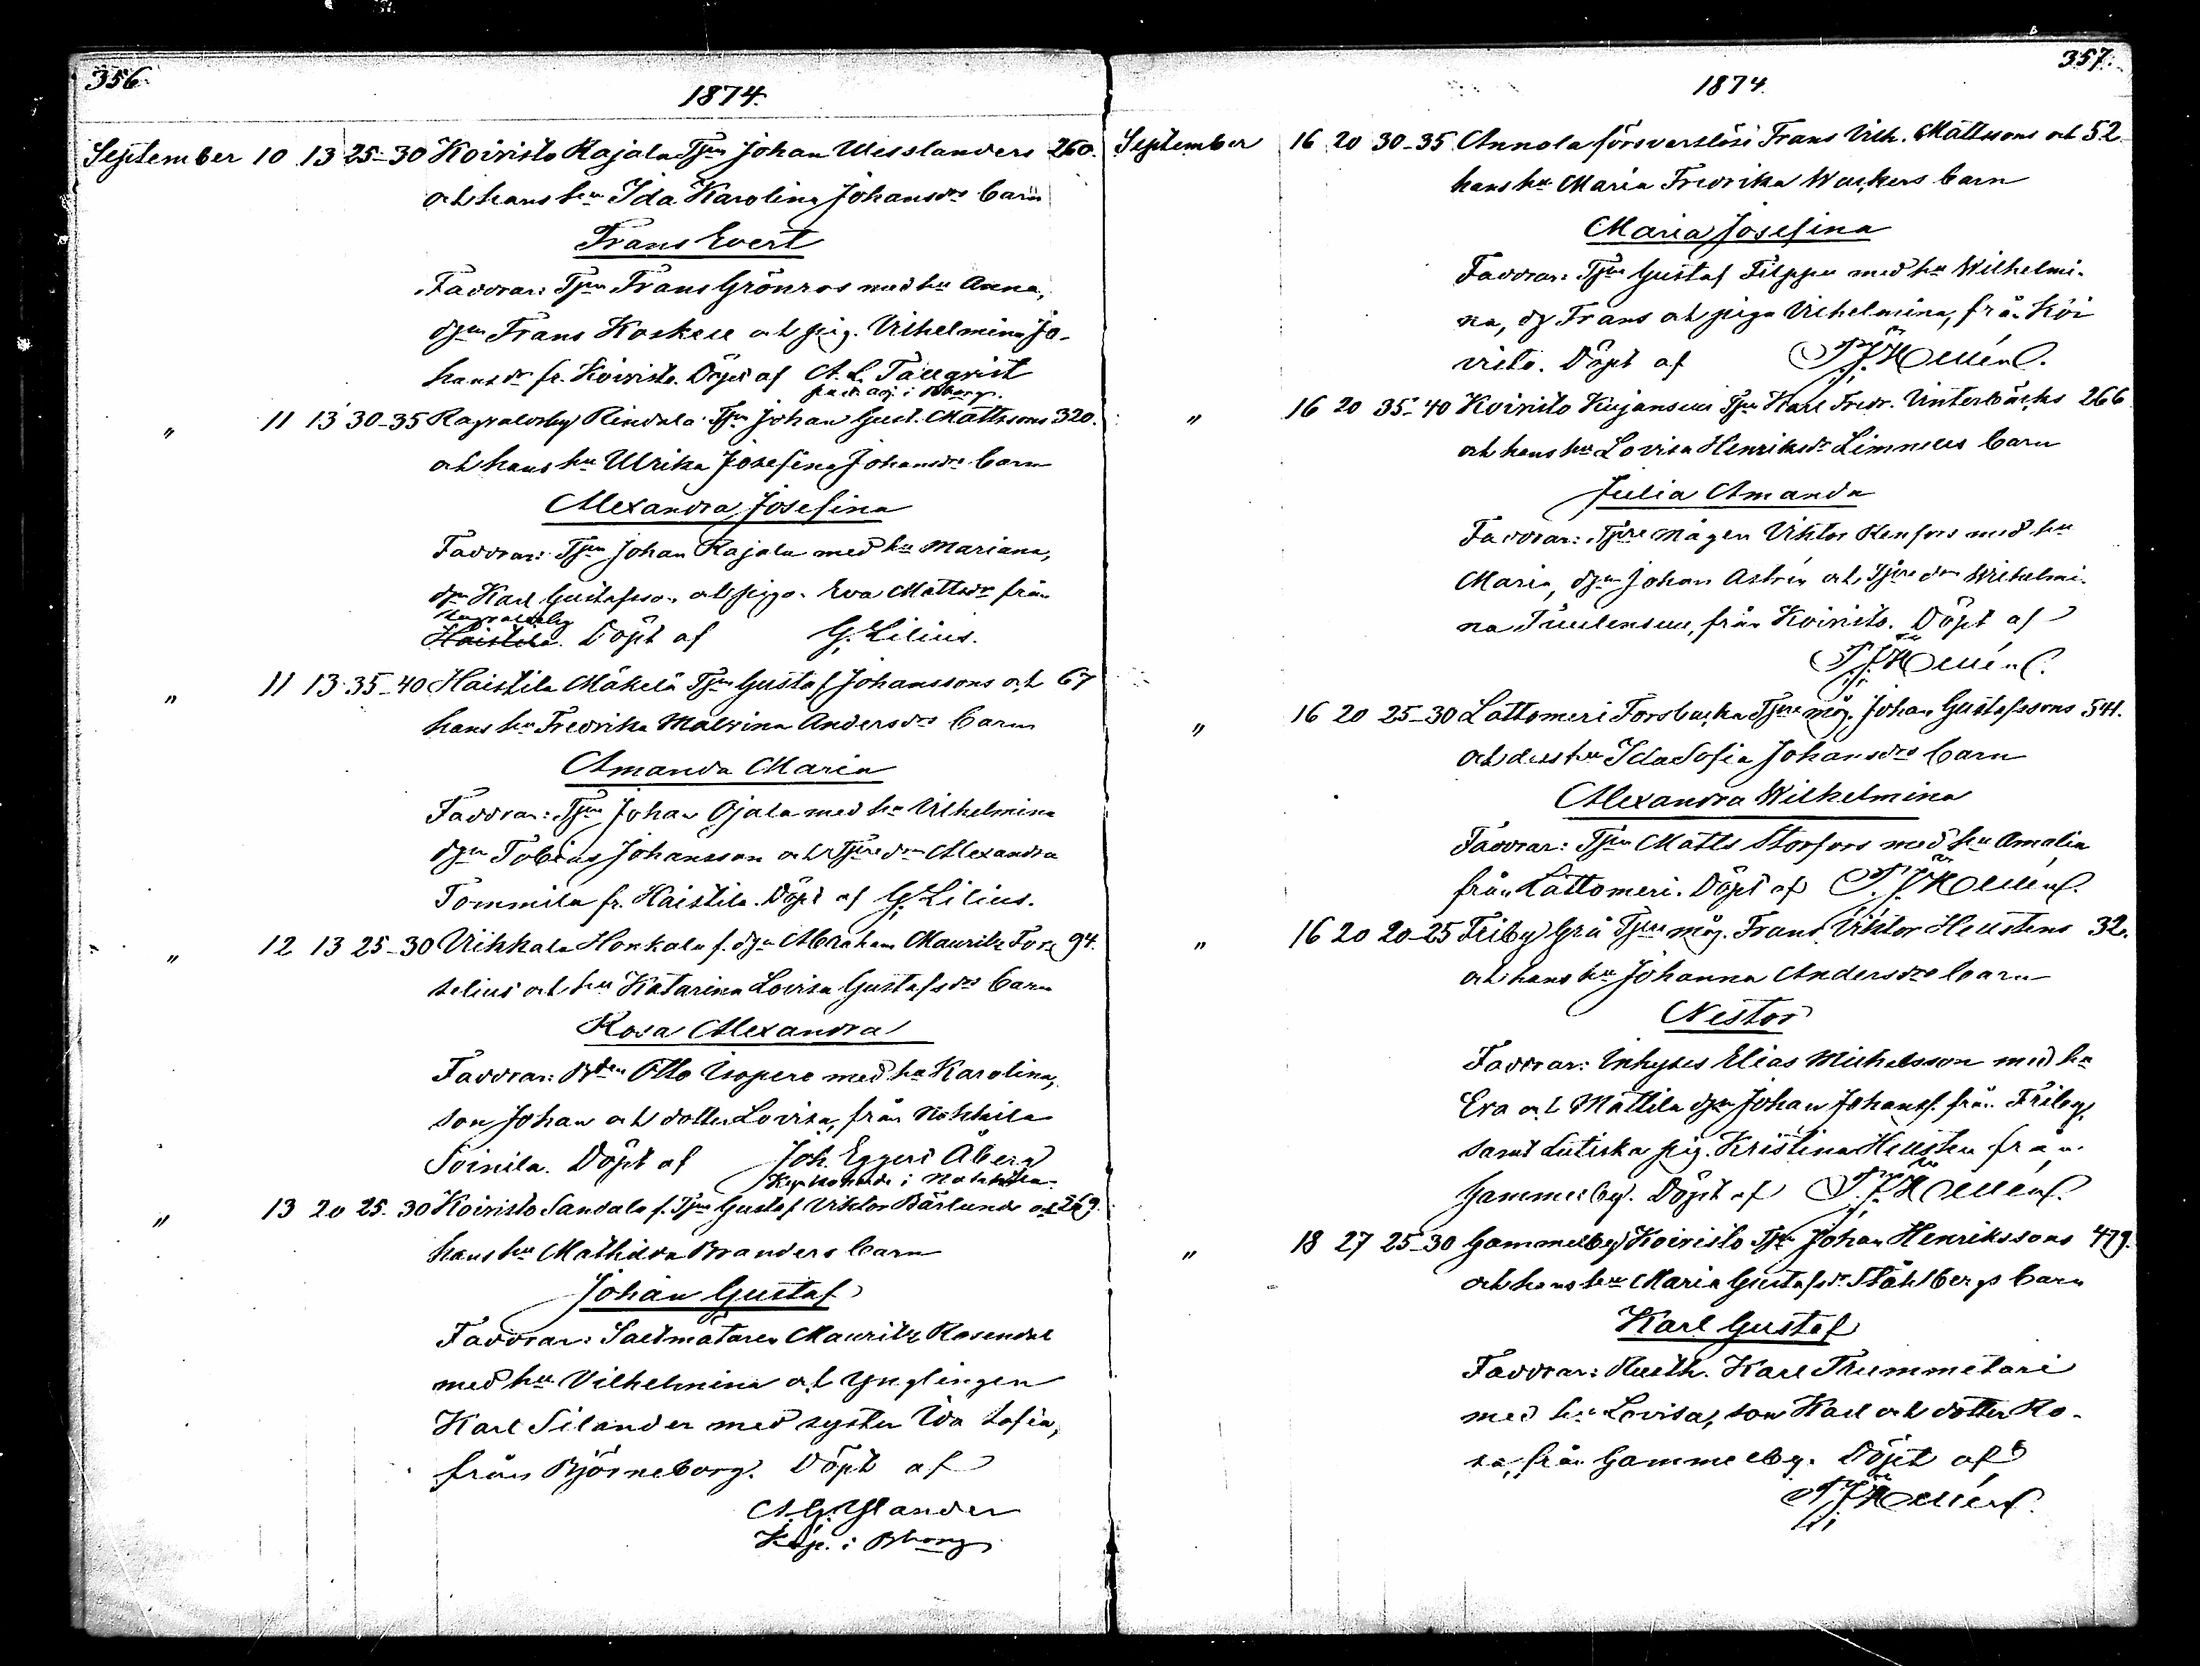 356.
1874.
September 10 13 25-30 Koivisto Rajala Tjen Johan Wesslanders 260.
och hans hu Ida Karolina Johansdrs barn
Frans Evert
Faddrar: Tjen Frans Grönros med hu Anna,
dgn Frans Koskell och pig. Vilhelmina Jo-
hansdr fr. Koivisto. Döpt af A. L. Tallqvist
past. adj. i Bborg.
" 11 13 30-35 Ragvaldsby Rindala Tjen Johan Gust. Mattssons 320.
och hans hu Ulrika Josefina Johansdrs barn
Alexandra Josefina
Faddrar: Tjen Johan Rajala med hu Mariana,
dgn Karl Gustafsson och pigan Eva Mattsdr från
Ragvaldsby
Haistila. Döpt af G. Lilius.
" 11 13 35-40 Haistila Mäkelä Tjen Gustaf Johanssons och 67
hans hu Fredrika Malvina Andersdrs barn
Amanda Maria
Faddrar: Tjen Johan Ojala med hu Vilhelmina
dgn Tobias Johansson och Tjene dn Alexandra
Tommila fr. Haistila. Döpt af G. Lilius.
" 12 13 25-30 Vihkala Honkala f. dgn Abraham Mauritz Fors 94.
selius och hu Katarina Lovisa Gustafsdrs barn
Rosa Alexandra
Faddrar: Bden Otto Isopere med hu Karolina,
son Johan och dotter Lovisa, från Nakkila
Soinila. Döpt af Joh. Eggert Åberg
Kapl. i Nakkila
" 13 20 25-30 Koivisto Sandala f. Tjen Gustaf Viktor Bärlunds och 269.
hans hu Mathilda Branders barn
Johan Gustaf
Faddrar: Saltmätaren Mauritz Rosendal
med hu Vilhelmina och Ynglingen
Karl Silander med syster Ida Sofia,
från Björneborg. Döpt af
A. G. Ylander
Kap. i Bborg
357.
1874.
September 16 20 30-35 Annola försvarslöse Frans Vilh. Mattssons och 52
hans hu Maria Fredrika Wackers barn
Maria Josefina
Faddrar: Tjen Gustaf Filppu med hu Wilhelmi-
na, dg Frans och piga Vilhelmina, från Koi
visto. Döpt af F. J. Hellén.
" 16 20 35-40 Koivisto Kujansuu Tjen Karl Fredr. Vinterbäcks 266
och hans hu Lovisa Henriksdr Limnells barn
Julia Amanda
Faddrar: Tjene mågen Viktor Renfors med hu
Maria, dgn Johan Astrén och Tjene dn Wilhelmi-
na Tuulensuu, från Koivisto. Döpt af
F. J. Hellén.
" 16 20 25-30 Lattomeri Forsbacka Tjene måg. Johan Gustafssons 541.
och dess hu Ida Sofia Johansdrs barn
Alexandra Wilhelmina
Faddrar: Tjen Matts Storfors med hu Amalia
från Lattomeri. Döpt af F. J. Hellén.
" 16 20 20-25 Friby Grå Tjene måg. Frans Viktor Hellstens 32.
och hans hu Johanna Andersdrs barn
Nestor
Faddrar: Inhyses Elias Michelsson med hu
Eva och Mattila dgn Johan Johansf. från Friby,
samt Lutiska pig. Kristina Hellsten från
Gammelby. Döpt af F. J. Hellén.
" 18 27 25-30 Gammelby Koivisto Tjen Johan Henrikssons 479.
och hans hu Maria Gustafsdr Ståhlbergs barn
Karl Gustaf
Faddrar: Rusth. Karl Trummetari
med hu Lovisa, son Karl och dotter Ro-
sa, från Gammelby. Döpt af
F. J. Hellén.